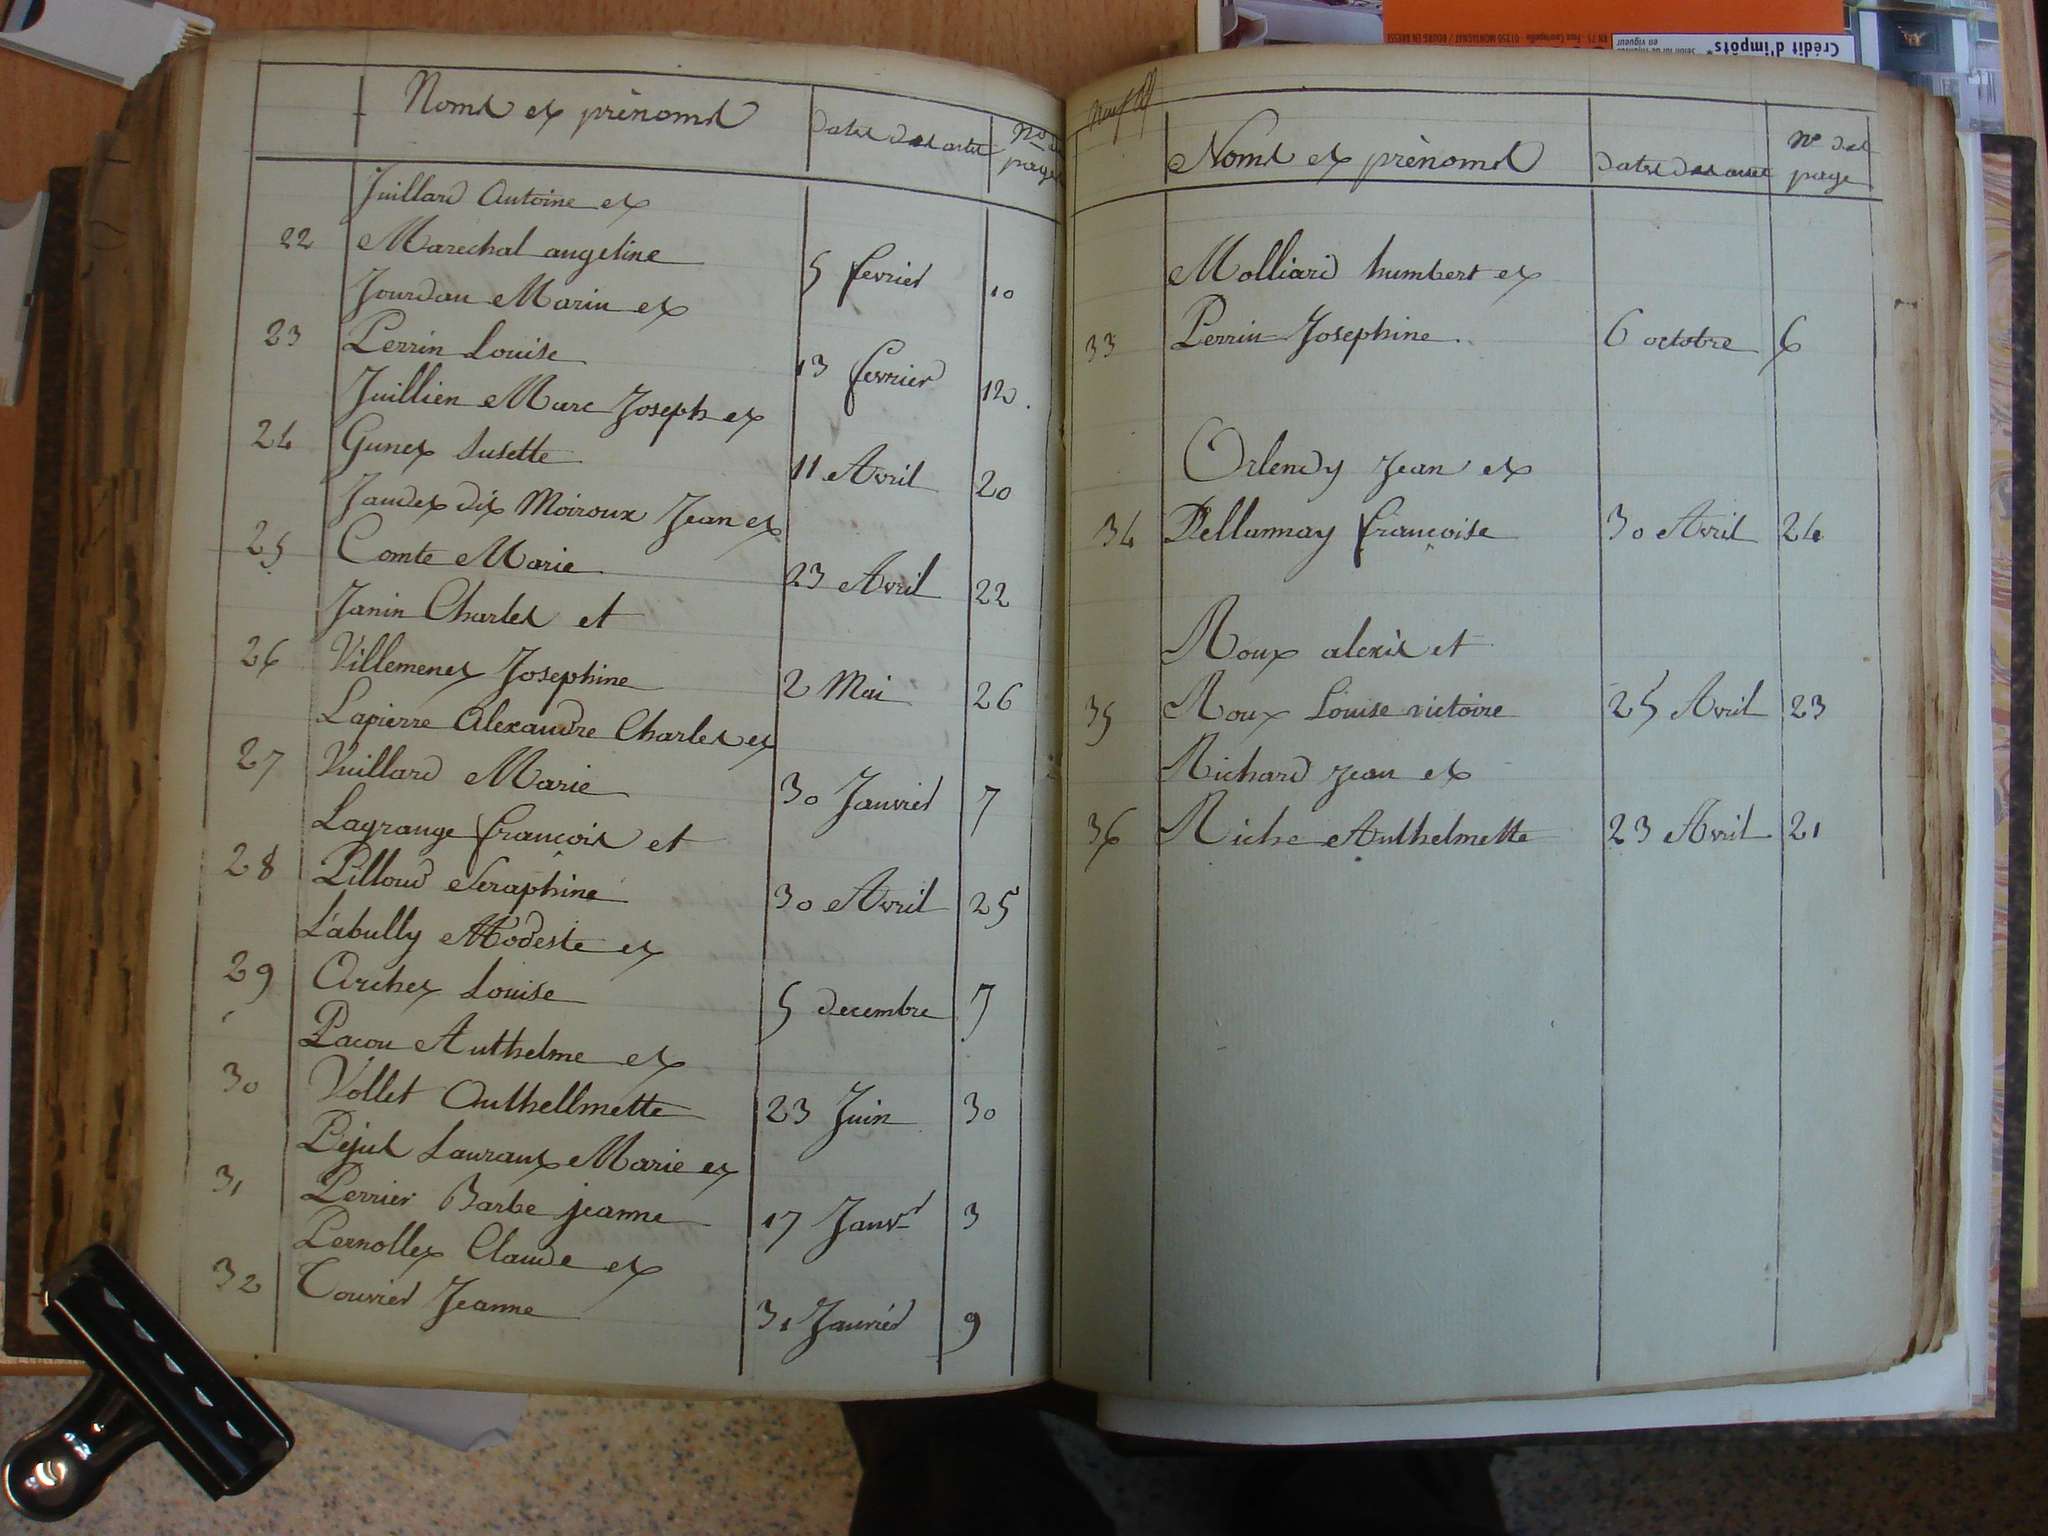 Noms et prénoms dates des actes Nos des pages
Juillard Antoine et
22 Marechal angeline 5 fevrier 10
Jourdan Marin et
23 Perrin Louise 13 fevrier 12
Juillien Marc Joseph et
24 Gunet Susette 11 Avril 20
Jaudet dit Moiroux Jean et
25 Comte Marie 23 Avril 22
Janin Charles et
26 Villemenet Josephine 2 Mai 26
Lapierre Alexandre Charles et
27 Vuillard Marie 30 Janvier 7
Lagrange francois et
28 Pilloud Seraphine 30 Avril 25
Labully Modeste et
29 Archet Louise 5 decembre 7
Pacou Anthelme et
30 Vollet Anthellmette 23 Juin 30
Pejus Laurant Marie et
31 Perrier Barbe jeanne 17 Janvr 3
Pernollet Claude et
32 Couvier Jeanne 31 Janvier 9
neuf
Noms et prénoms dates des actes No des page
Molliard humbert et
33 Perrin Josephine 6 octobre 6
Orlendy Jean et
34 Dellannay francoise 30 Avril 24
Roux alexis et
35 Roux Louise victoire 25 Avril 23
Richard Jean et
36 Riche Anthelmette 23 Avril 21
Crédit d'impôts*
en vigueur